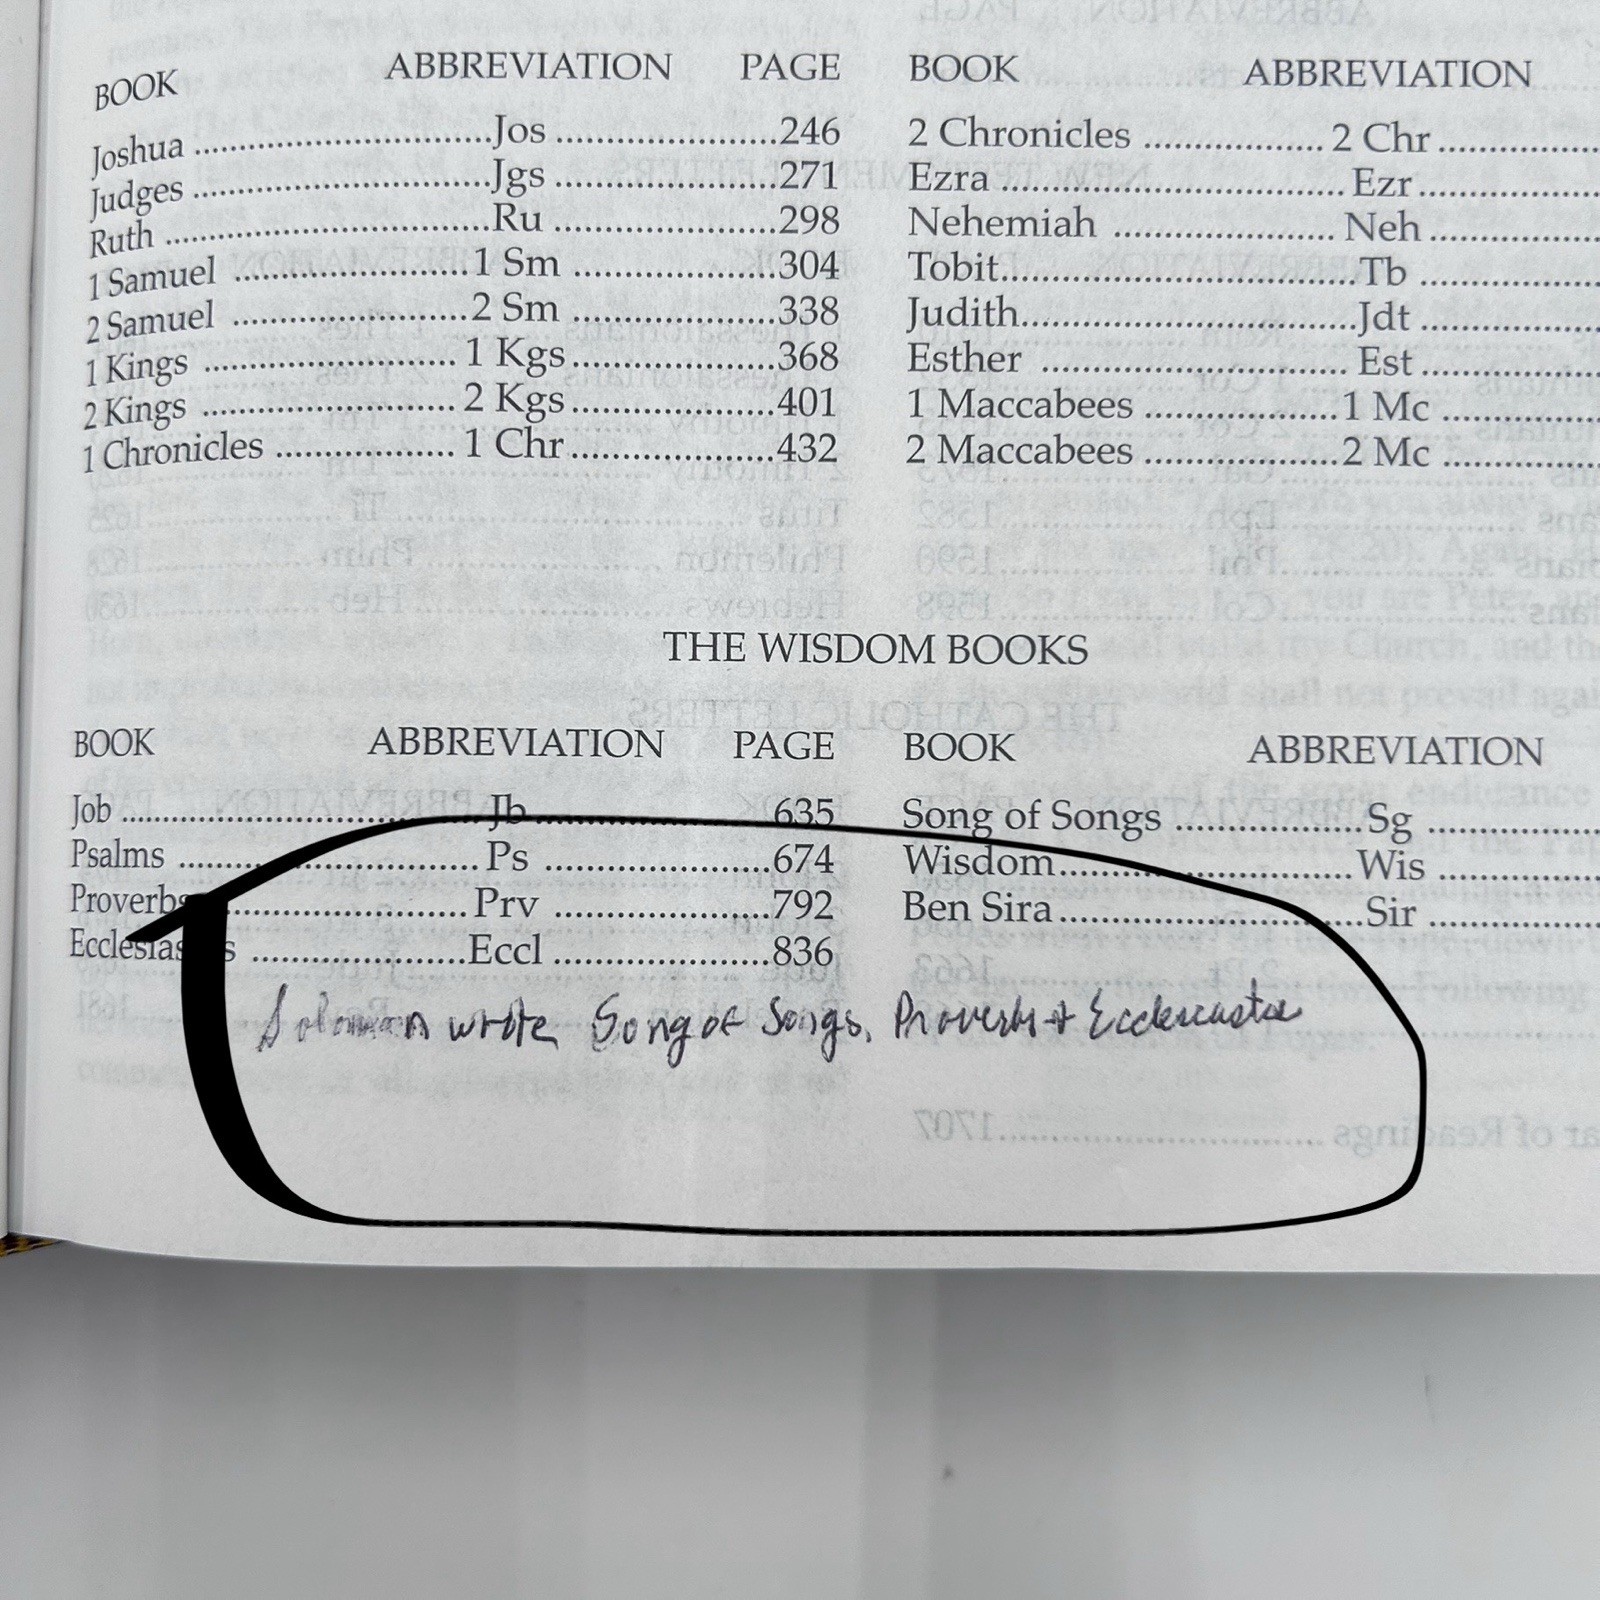 BOOK ABBREVIATION PAGE BOOK ABBREVIATION
Joshua ........ Jos ........ 246 2 Chronicles ........ 2 Chr ........
Judges ........ Jgs ........ 271 Ezra ........ Ezr ........
Ruth ........ Ru ........ 298 Nehemiah ........ Neh ........
1 Samuel ........ 1 Sm ........ 304 Tobit ........ Tb ........
2 Samuel ........ 2 Sm ........ 338 Judith ........ Jdt ........
1 Kings ........ 1 Kgs ........ 368 Esther ........ Est ........
2 Kings ........ 2 Kgs ........ 401 1 Maccabees ........ 1 Mc ........
1 Chronicles ........ 1 Chr ........ 432 2 Maccabees ........ 2 Mc ........
THE WISDOM BOOKS
BOOK ABBREVIATION PAGE BOOK ABBREVIATION
Job ........ Jb ........ 635 Song of Songs ........ Sg ........
Psalms ........ Ps ........ 674 Wisdom ........ Wis ........
Proverbs ........ Prv ........ 792 Ben Sira ........ Sir ........
Ecclesiastes ........ Eccl ........ 836
Soloman wrote Song of Songs, Proverbs +